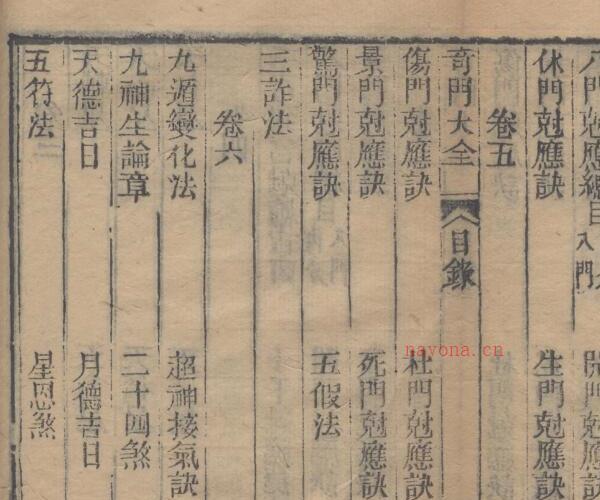 八門尅應總目 八門
開門尅應
休門尅應訣
生門尅應訣
卷五
奇門大全 目錄
傷門尅應訣
杜門尅應訣
景門尅應訣
死門尅應訣
驚門尅應訣
五假法
三詐法
卷六
九遁變化法
超神接氣訣
九神生論章
二十四煞
天德吉日
月德吉日
五符法
星恩煞
nayona.cn